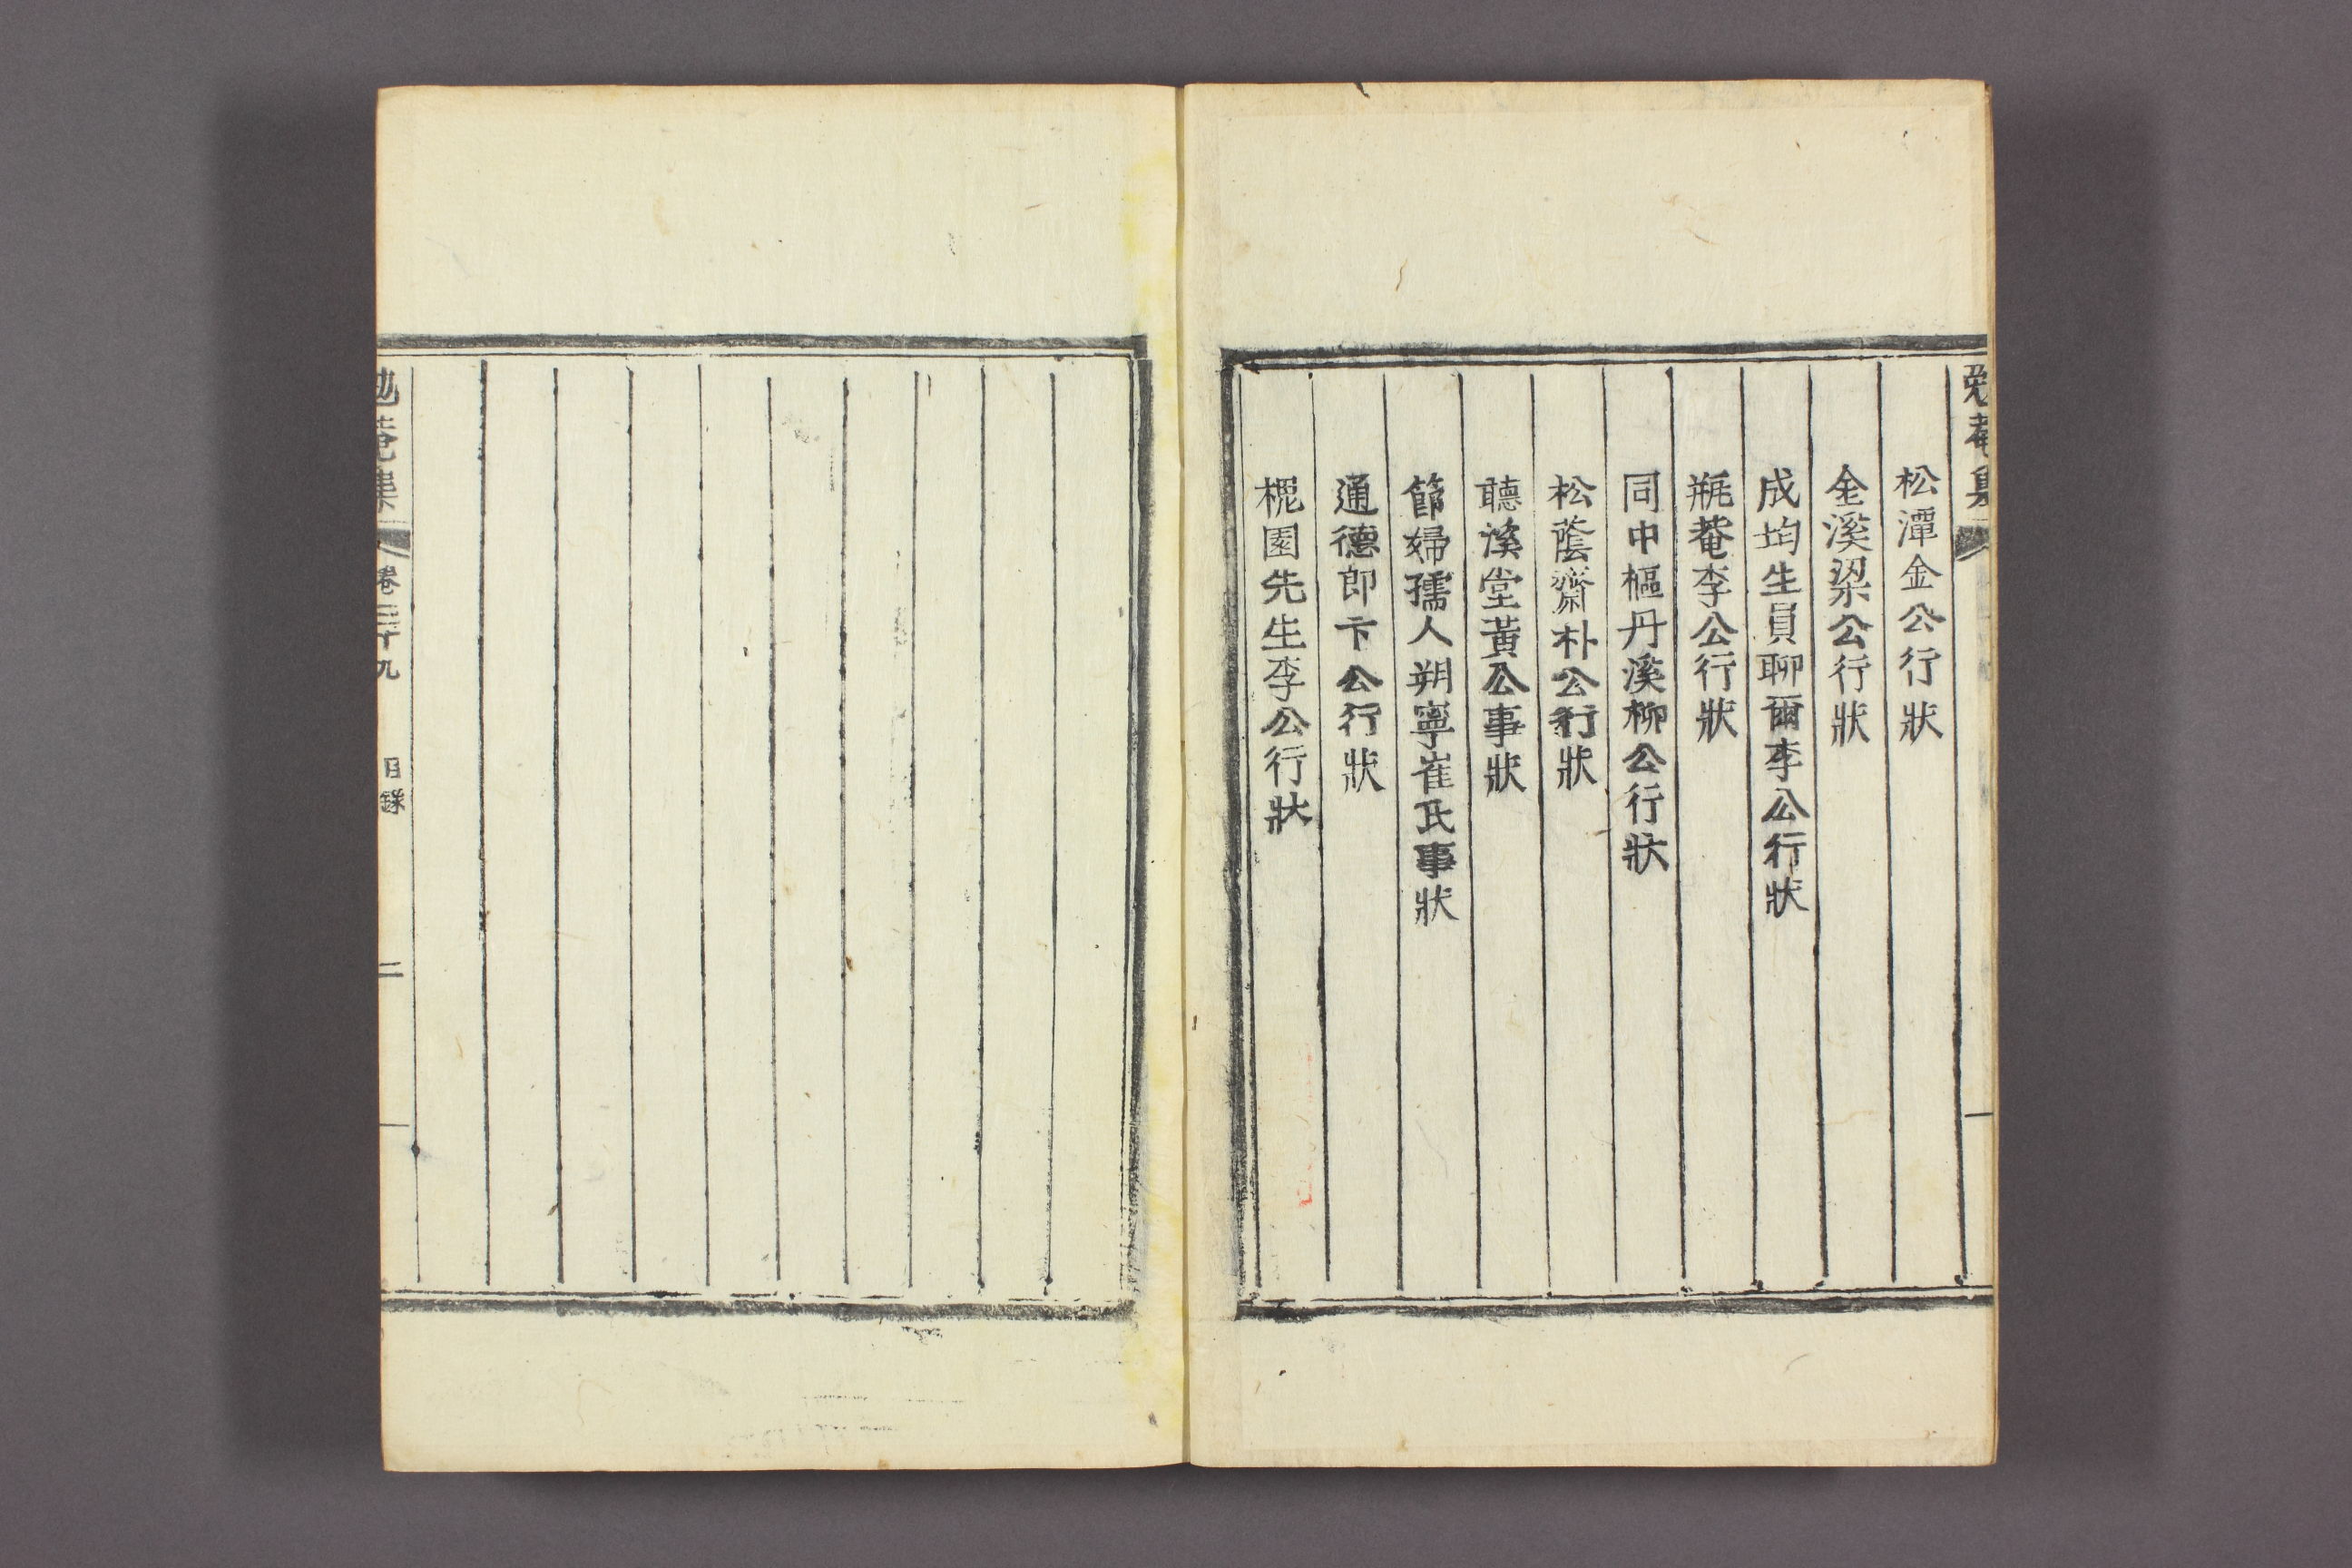 勉菴集
松潭金公行狀
金溪梁公行狀
成均生員聊爾李公行狀
甁菴李公行狀
同中樞丹溪柳公行狀
松蔭齋朴公行狀
聽溪堂黃公事狀
節婦孺人朔寧崔氏事狀
通德郎卞公行狀
槐園先生李公行狀
勉菴集
卷三十九
目錄
二